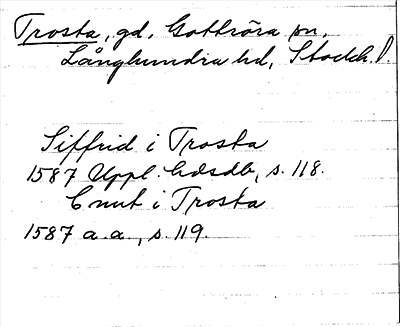 Trosta, gd, Gottröra sn,
Långhundra hd, Stockh. l.
Siffrid i Trosta
1587 Uppl. hdsdb, s. 118.
Cnut i Trosta
1587 a. a., s. 119.